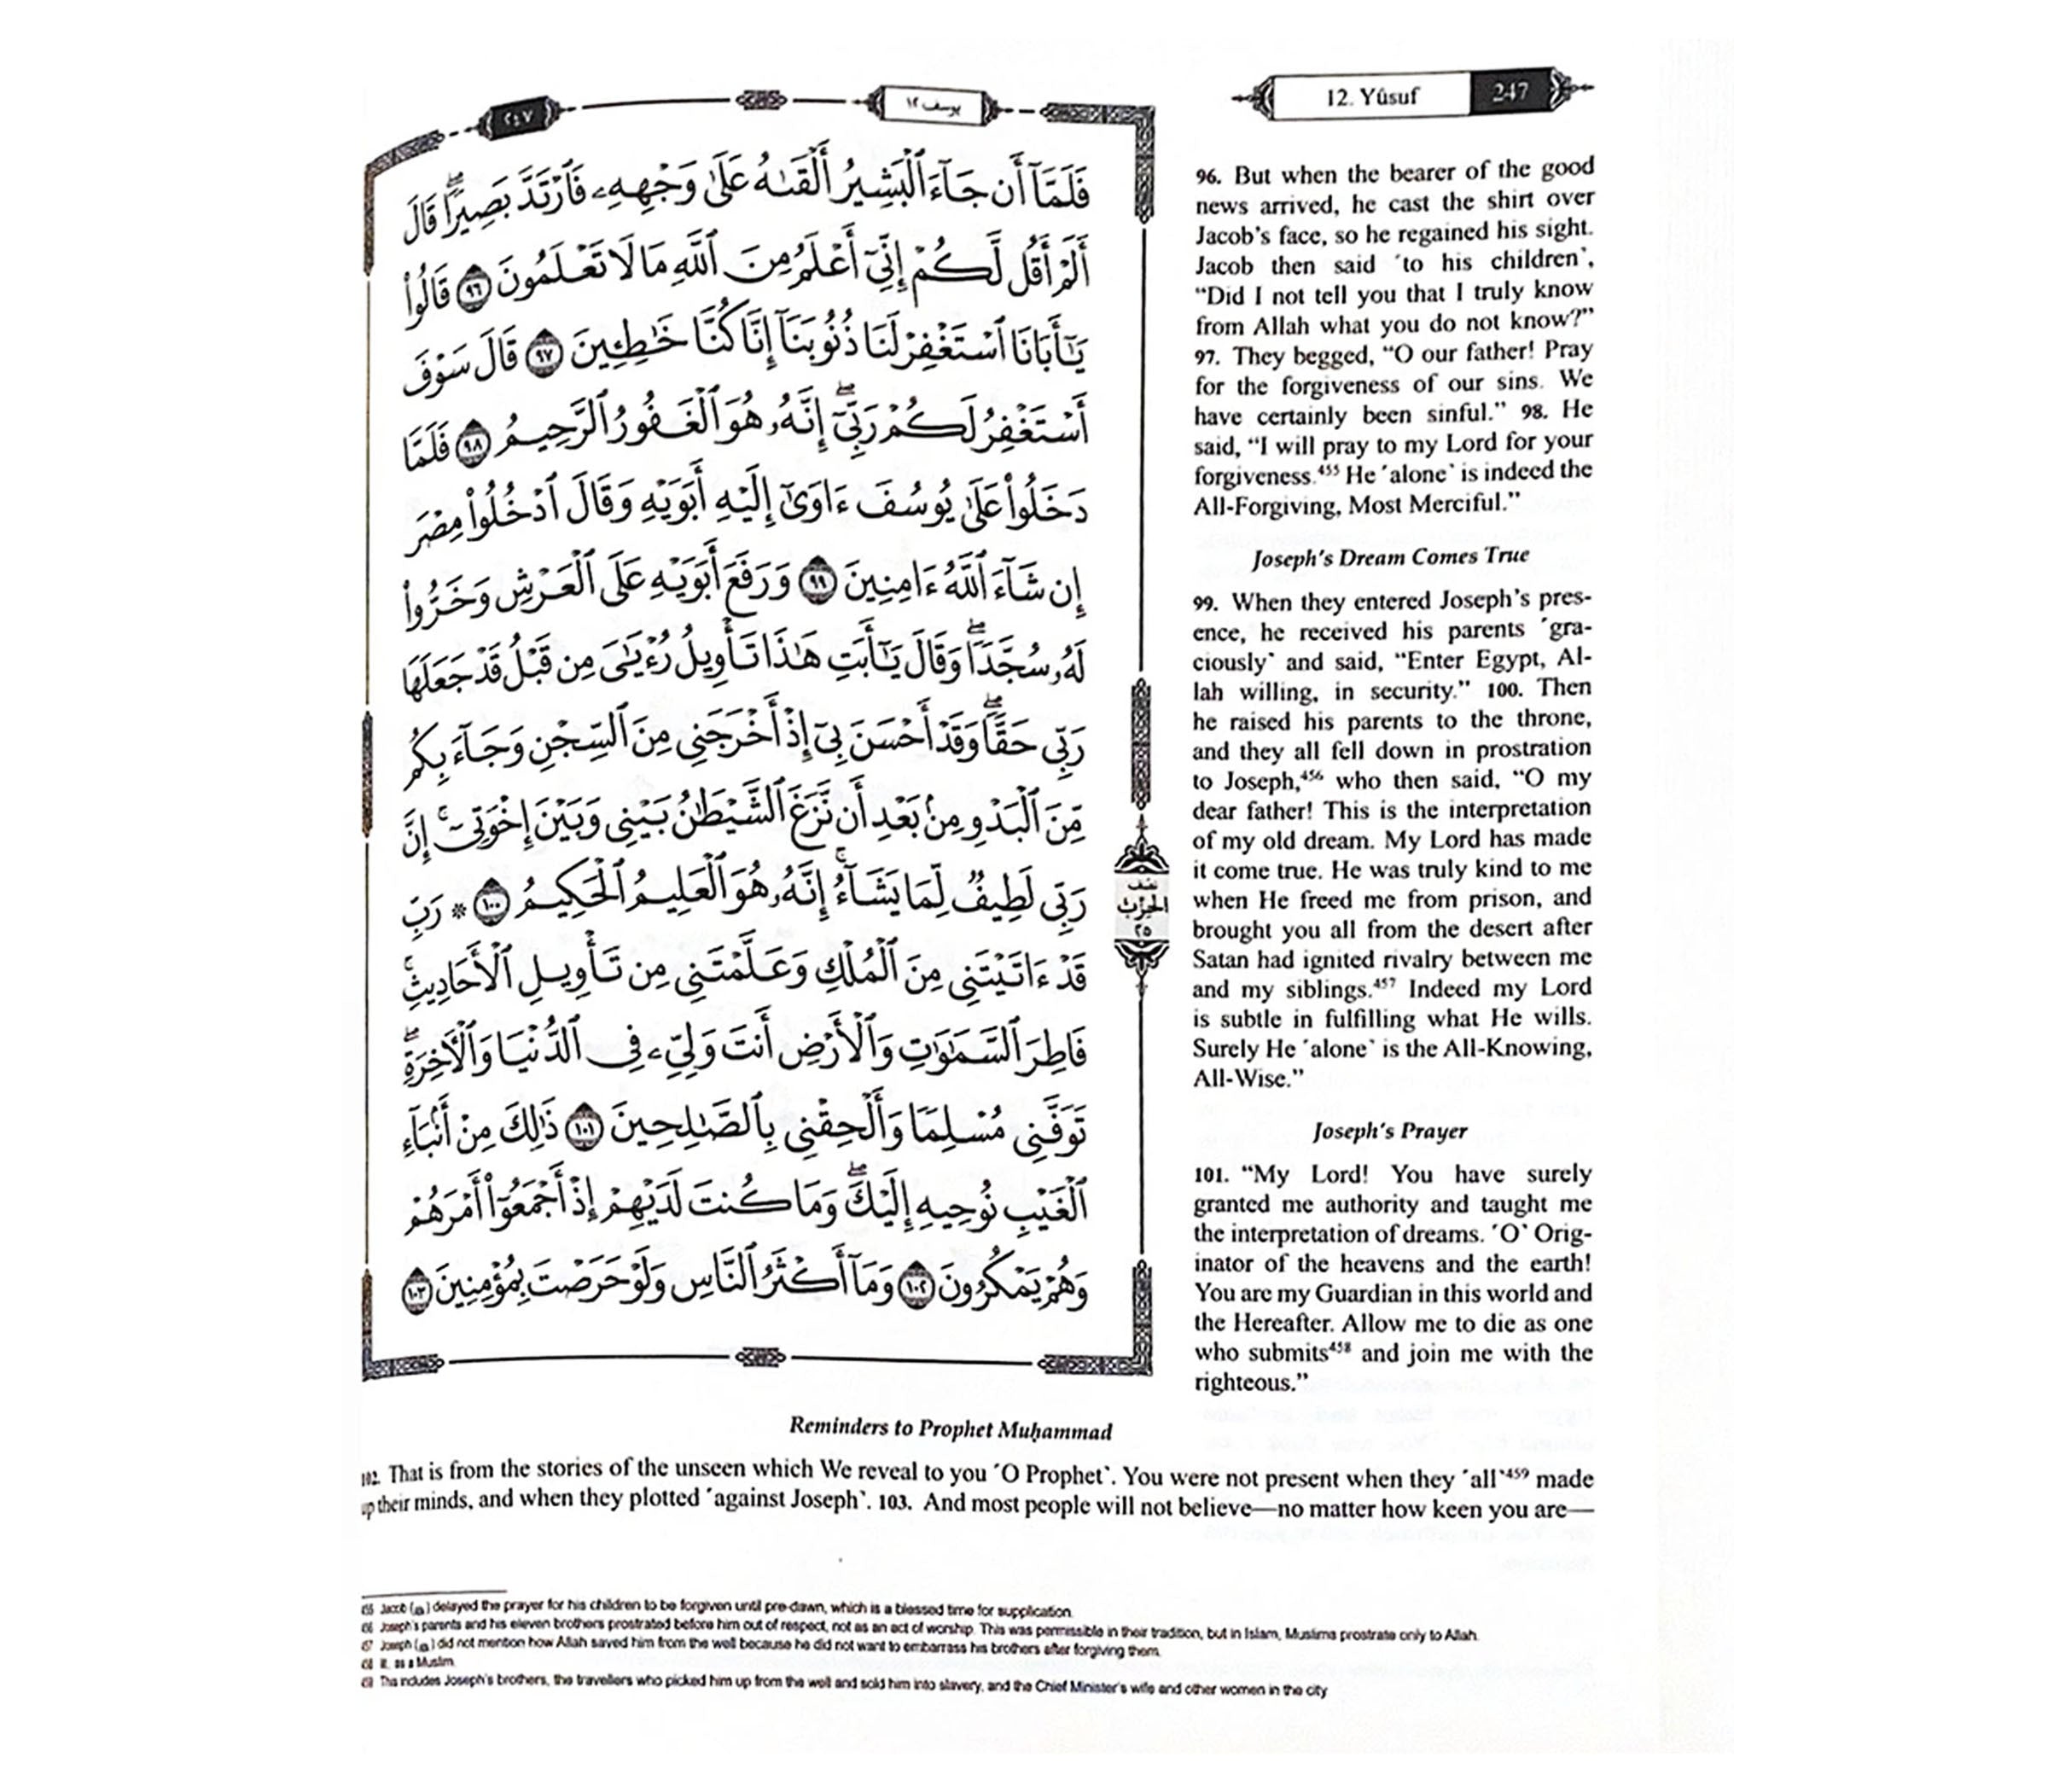 ٢٤٧
يوسف ١٢
12. Yûsuf 247
فَلَمَّآ أَن جَآءَ ٱلْبَشِيرُ أَلْقَىٰهُ عَلَىٰ وَجْهِهِۦ فَٱرْتَدَّ بَصِيرًاۖ قَالَ
أَلَمْ أَقُل لَّكُمْ إِنِّىٓ أَعْلَمُ مِنَ ٱللَّهِ مَا لَا تَعْلَمُونَ ٩٦ قَالُوا۟
يَٰٓأَبَانَا ٱسْتَغْفِرْ لَنَا ذُنُوبَنَآ إِنَّا كُنَّا خَٰطِـِٔينَ ٩٧ قَالَ سَوْفَ
أَسْتَغْفِرُ لَكُمْ رَبِّىٓۖ إِنَّهُۥ هُوَ ٱلْغَفُورُ ٱلرَّحِيمُ ٩٨ فَلَمَّا
دَخَلُوا۟ عَلَىٰ يُوسُفَ ءَاوَىٰٓ إِلَيْهِ أَبَوَيْهِ وَقَالَ ٱدْخُلُوا۟ مِصْرَ
إِن شَآءَ ٱللَّهُ ءَامِنِينَ ٩٩ وَرَفَعَ أَبَوَيْهِ عَلَى ٱلْعَرْشِ وَخَرُّوا۟
لَهُۥ سُجَّدًاۖ وَقَالَ يَٰٓأَبَتِ هَٰذَا تَأْوِيلُ رُءْيَٰىَ مِن قَبْلُ قَدْ جَعَلَهَا
رَبِّى حَقًّاۖ وَقَدْ أَحْسَنَ بِىٓ إِذْ أَخْرَجَنِى مِنَ ٱلسِّجْنِ وَجَآءَ بِكُم
مِّنَ ٱلْبَدْوِ مِنۢ بَعْدِ أَن نَّزَغَ ٱلشَّيْطَٰنُ بَيْنِى وَبَيْنَ إِخْوَتِىٓۚ إِنَّ
رَبِّى لَطِيفٌ لِّمَا يَشَآءُۚ إِنَّهُۥ هُوَ ٱلْعَلِيمُ ٱلْحَكِيمُ ١٠٠ * رَبِّ
قَدْ ءَاتَيْتَنِى مِنَ ٱلْمُلْكِ وَعَلَّمْتَنِى مِن تَأْوِيلِ ٱلْأَحَادِيثِۚ
فَاطِرَ ٱلسَّمَٰوَٰتِ وَٱلْأَرْضِ أَنتَ وَلِىِّۦ فِى ٱلدُّنْيَا وَٱلْءَاخِرَةِۖ
تَوَفَّنِى مُسْلِمًا وَأَلْحِقْنِى بِٱلصَّٰلِحِينَ ١٠١ ذَٰلِكَ مِنْ أَنۢبَآءِ
ٱلْغَيْبِ نُوحِيهِ إِلَيْكَۖ وَمَا كُنتَ لَدَيْهِمْ إِذْ أَجْمَعُوٓا۟ أَمْرَهُمْ
وَهُمْ يَمْكُرُونَ ١٠٢ وَمَآ أَكْثَرُ ٱلنَّاسِ وَلَوْ حَرَصْتَ بِمُؤْمِنِينَ ١٠٣
نصف
الحزب
٢٥
96. But when the bearer of the good
news arrived, he cast the shirt over
Jacob's face, so he regained his sight.
Jacob then said ´to his children`,
“Did I not tell you that I truly know
from Allah what you do not know?”
97. They begged, “O our father! Pray
for the forgiveness of our sins. We
have certainly been sinful.” 98. He
said, “I will pray to my Lord for your
forgiveness.⁴⁵⁵ He ´alone` is indeed the
All-Forgiving, Most Merciful.”
Joseph's Dream Comes True
99. When they entered Joseph's pres-
ence, he received his parents ´gra-
ciously` and said, “Enter Egypt, Al-
lah willing, in security.” 100. Then
he raised his parents to the throne,
and they all fell down in prostration
to Joseph,⁴⁵⁶ who then said, “O my
dear father! This is the interpretation
of my old dream. My Lord has made
it come true. He was truly kind to me
when He freed me from prison, and
brought you all from the desert after
Satan had ignited rivalry between me
and my siblings.⁴⁵⁷ Indeed my Lord
is subtle in fulfilling what He wills.
Surely He ´alone` is the All-Knowing,
All-Wise.”
Joseph's Prayer
101. “My Lord! You have surely
granted me authority and taught me
the interpretation of dreams. ´O` Orig-
inator of the heavens and the earth!
You are my Guardian in this world and
the Hereafter. Allow me to die as one
who submits⁴⁵⁸ and join me with the
righteous.”
Reminders to Prophet Muḥammad
102. That is from the stories of the unseen which We reveal to you ´O Prophet`. You were not present when they ´all`⁴⁵⁹ made
up their minds, and when they plotted ´against Joseph`. 103. And most people will not believe—no matter how keen you are—
Jacob (ﷺ) delayed the prayer for his children to be forgiven until pre-dawn, which is a blessed time for supplication.
Joseph's parents and his eleven brothers prostrated before him out of respect, not as an act of worship. This was permissible in their tradition, but in Islam, Muslims prostrate only to Allah.
Joseph (ﷺ) did not mention how Allah saved him from the well because he did not want to embarrass his brothers after forgiving them.
lit. as a Muslim.
This includes Joseph's brothers, the travellers who picked him up from the well and sold him into slavery, and the Chief Minister's wife and other women in the city